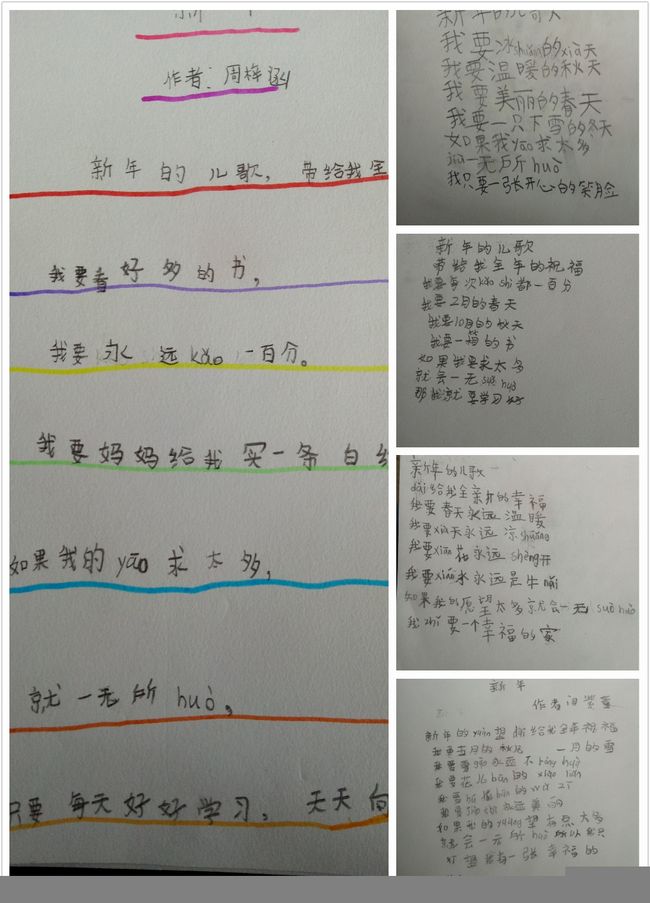 作者：周梓涵
新年的儿歌，带给我全
我要看好多的书，
我要永远kǎo一百分。
我要妈妈给我买一条白
如果我的yāo求太多，
就一无所huò，
只要每天好好学习，天天向
新年的儿歌
我要冰shuǎng的xià天
我要温暖的秋天
我要美丽的春天
我要一只下雪的冬天
如果我yāo求太多
jiù一无所huò
我只要一张开心的笑脸
新年的儿歌
带给我全年的祝福
我要每次kǎo shì都一百分
我要2月的春天
我要10月的秋天
我要一箱的书
如果我要求太多
就会一无suǒ huò
那我就要学习好
新年的儿歌
dài给我全新的幸福
我要春天永远温暖
我要xià天永远凉shuǎng
我要xiān花永远shèng开
我要xiān水永远是牛nǎi
如果我的愿望太多就会一无suǒ huò
我zhǐ要一个幸福的家
新年
作者
新年的yuàn望 给我全年祝福
我要五月的秋 一月的雪
我要雪gāo永远不róng huà
我要花儿bān的xiào liǎn
如果我的yuàng望有点太多
就会一无所huò所以我只
希望我有一张幸福的